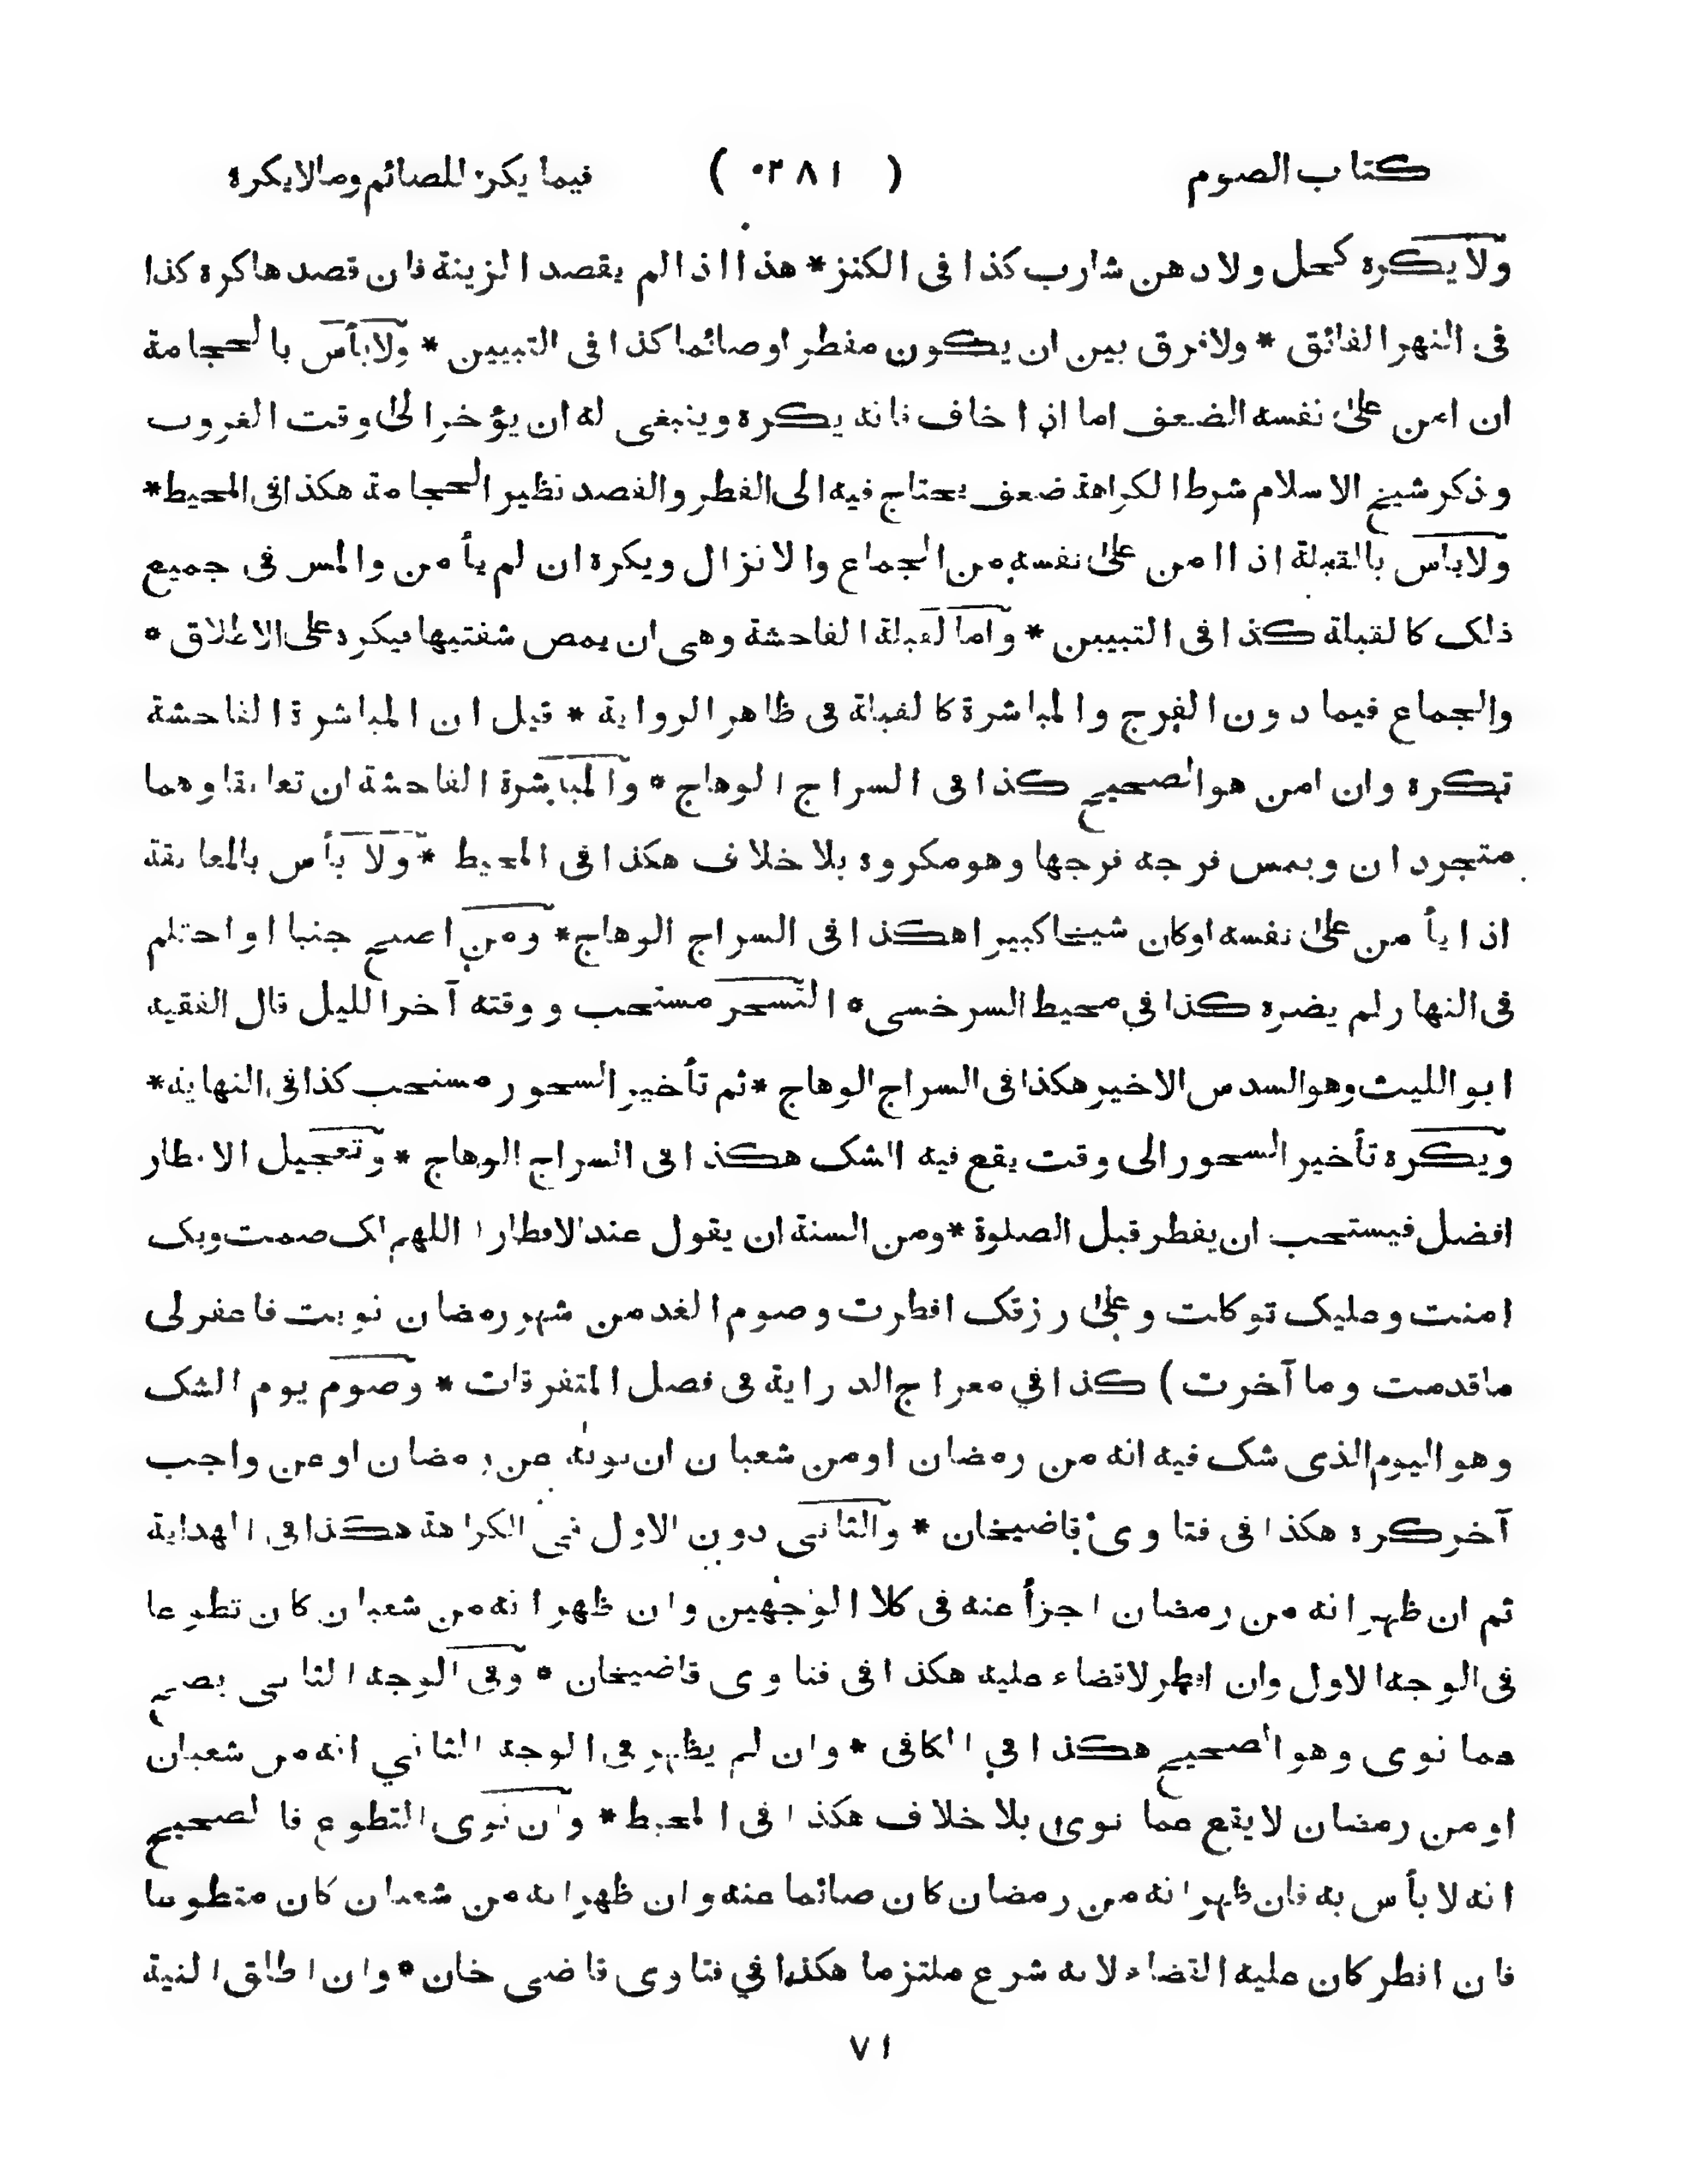 كتاب الصوم ( ٢٨١ ) فيما يكره للصائم ومالايكره
ولايكره كحل ولادهن شارب كذا فى الكنز * هذا اذا لم يقصد الزينة فان قصدها كره كذا
فى النهر الفائق * ولافرق بين ان يكون مفطرا وصائما كذا فى التبيين * ولابأس بالحجامة
ان امن على نفسه الضعف اما اذا خاف فانه يكره وينبغى له ان يؤخر الى وقت الغروب
وذكر شيخ الاسلام شرط الكراهة ضعف يحتاج فيه الى الفطر والفصد نظير الحجامة هكذا فى المحيط *
ولابأس بالقبلة اذا امن على نفسه من الجماع والانزال ويكره ان لم يأمن والمس فى جميع
ذلك كالقبلة كذا فى التبيين * واما القبلة الفاحشة وهى ان يمص شفتيها فيكره على الاطلاق *
والجماع فيما دون الفرج والمباشرة كالقبلة فى ظاهر الرواية * قيل ان المباشرة الفاحشة
تكره وان امن هو الصحيح كذا فى السراج الوهاج * والمباشرة الفاحشة ان تعانقا وهما
متجردان ويمس فرجه فرجها وهو مكروه بلا خلاف هكذا فى المحيط * ولا بأس بالمعانقة
اذا يأمن على نفسه اوكان شيخا كبيرا هكذا فى السراج الوهاج * ومن اصبح جنبا او احتلم
فى النهار لم يضره كذا في محيط السرخسى * التسحر مستحب ووقته آخر الليل قال الفقيه
ابو الليث وهو السدس الاخير هكذا فى السراج الوهاج * ثم تأخير السحور مستحب كذا فى النهاية *
ويكره تأخير السحور الى وقت يقع فيه الشك هكذا فى السراج الوهاج * وتعجيل الافطار
افضل فيستحب ان يفطر قبل الصلوة * ومن السنة ان يقول عند الافطار ( اللهم لك صمت وبك
امنت وعليك توكلت وعلى رزقك افطرت وصوم الغد من شهر رمضان نويت فاغفر لى
ماقدمت وما آخرت ) كذا في معراج الدراية فى فصل المتفرقات * وصوم يوم الشك
وهو اليوم الذى شك فيه انه من رمضان او من شعبان ان نواه عن رمضان او عن واجب
آخر كره هكذا فى فتاوى قاضيخان * والثانى دون الاول فى الكراهة هكذا فى الهداية
ثم ان ظهر انه من رمضان اجزأ عنه فى كلا الوجهين وان ظهر انه من شعبان كان تطوعا
فى الوجه الاول وان افطر لاقضاء عليه هكذا فى فتاوى قاضيخان * وفى الوجه الثانى يصح
عما نوى وهو الصحيح هكذا في الكافى * وان لم يظهر فى الوجه الثاني انه من شعبان
او من رمضان لايقع عما نوى بلا خلاف هكذا فى المحيط * وان نوى التطوع فالصحيح
انه لا بأس به فان ظهر انه من رمضان كان صائما عنه وان ظهر انه من شعبان كان متطوعا
فان افطر كان عليه القضاء لانه شرع ملتزما هكذا في فتاوى قاضى خان * وان اطلق النية
٧١